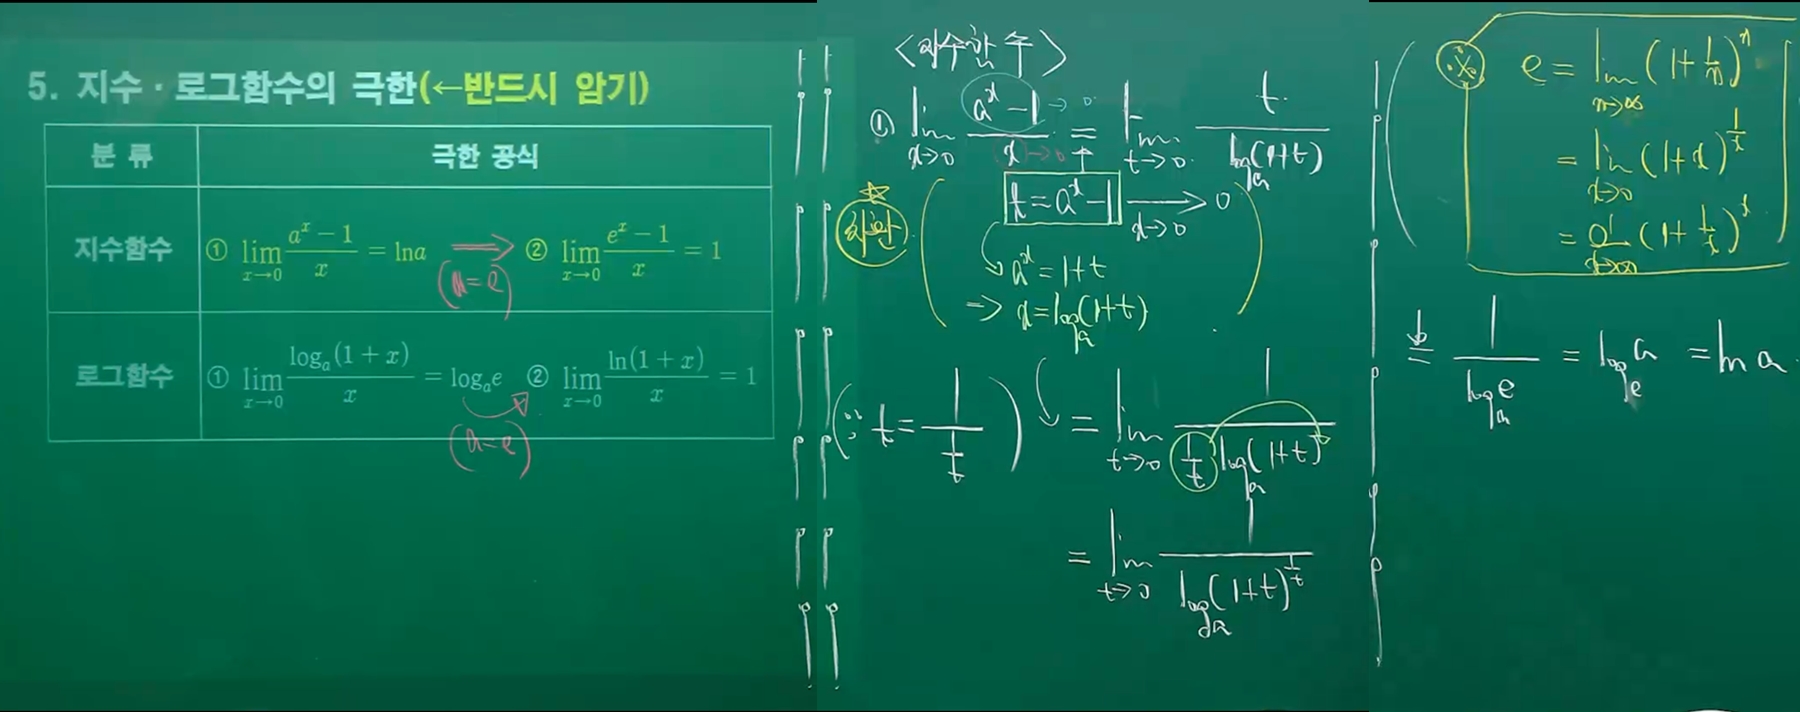 5. 지수·로그함수의 극한(←반드시 암기)
분 류 극한 공식
지수함수 ① lim x→0 (a^x − 1)/x = lna ⇒ ② lim x→0 (e^x − 1)/x = 1
(a=e)
로그함수 ① lim x→0 log_a(1 + x)/x = log_a e ② lim x→0 ln(1 + x)/x = 1
(a=e)
<지수함수>
① lim x→0 (a^x − 1)/x = lim t→0 t/log_a(1+t)
→ 0
→ 0
☆
치환
t = a^x − 1 → 0
x→0
a^x = 1+t
=> x = log_a(1+t)
(∵ t = 1/(1/t))
= lim t→0 1/((1/t) log_a(1+t))
= lim t→0 1/log_a(1+t)^(1/t)
e = lim n→∞ (1+1/n)^n
= lim x→0 (1+x)^(1/x)
= lim x→∞ (1+1/x)^x
= 1/log_a e = log_e a = ln a